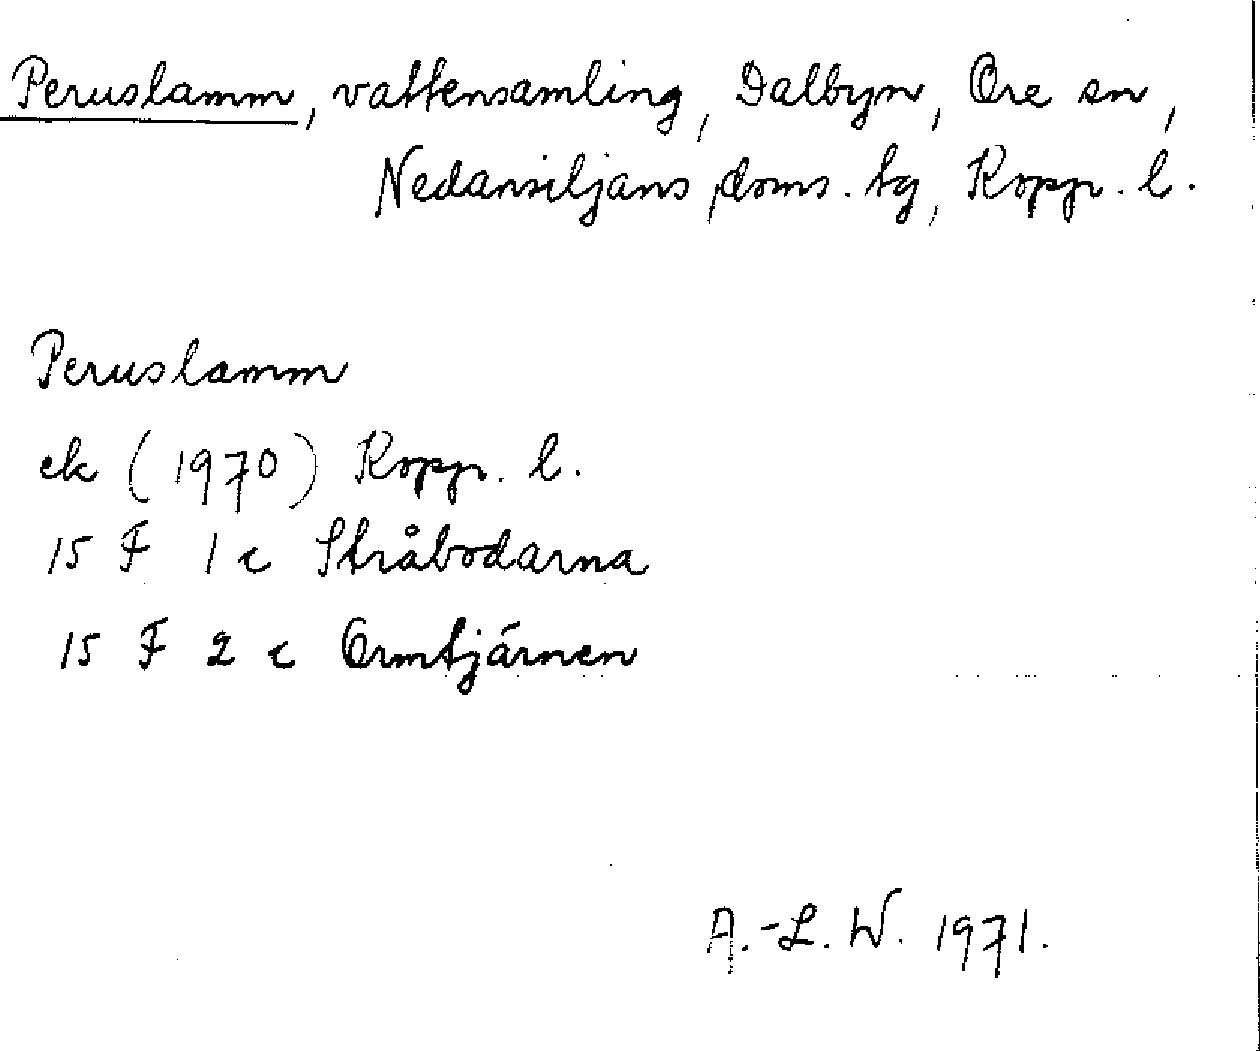 Peruslamm, vattensamling, Dalbyn, Ore sn,
Nedansiljans doms. tg, Kopp. l.
Peruslamm
ek (1970) Kopp. l.
15 F 1 c Stråbodarna
15 F 2 c Ormtjärnen
A.-L. W. 1971.